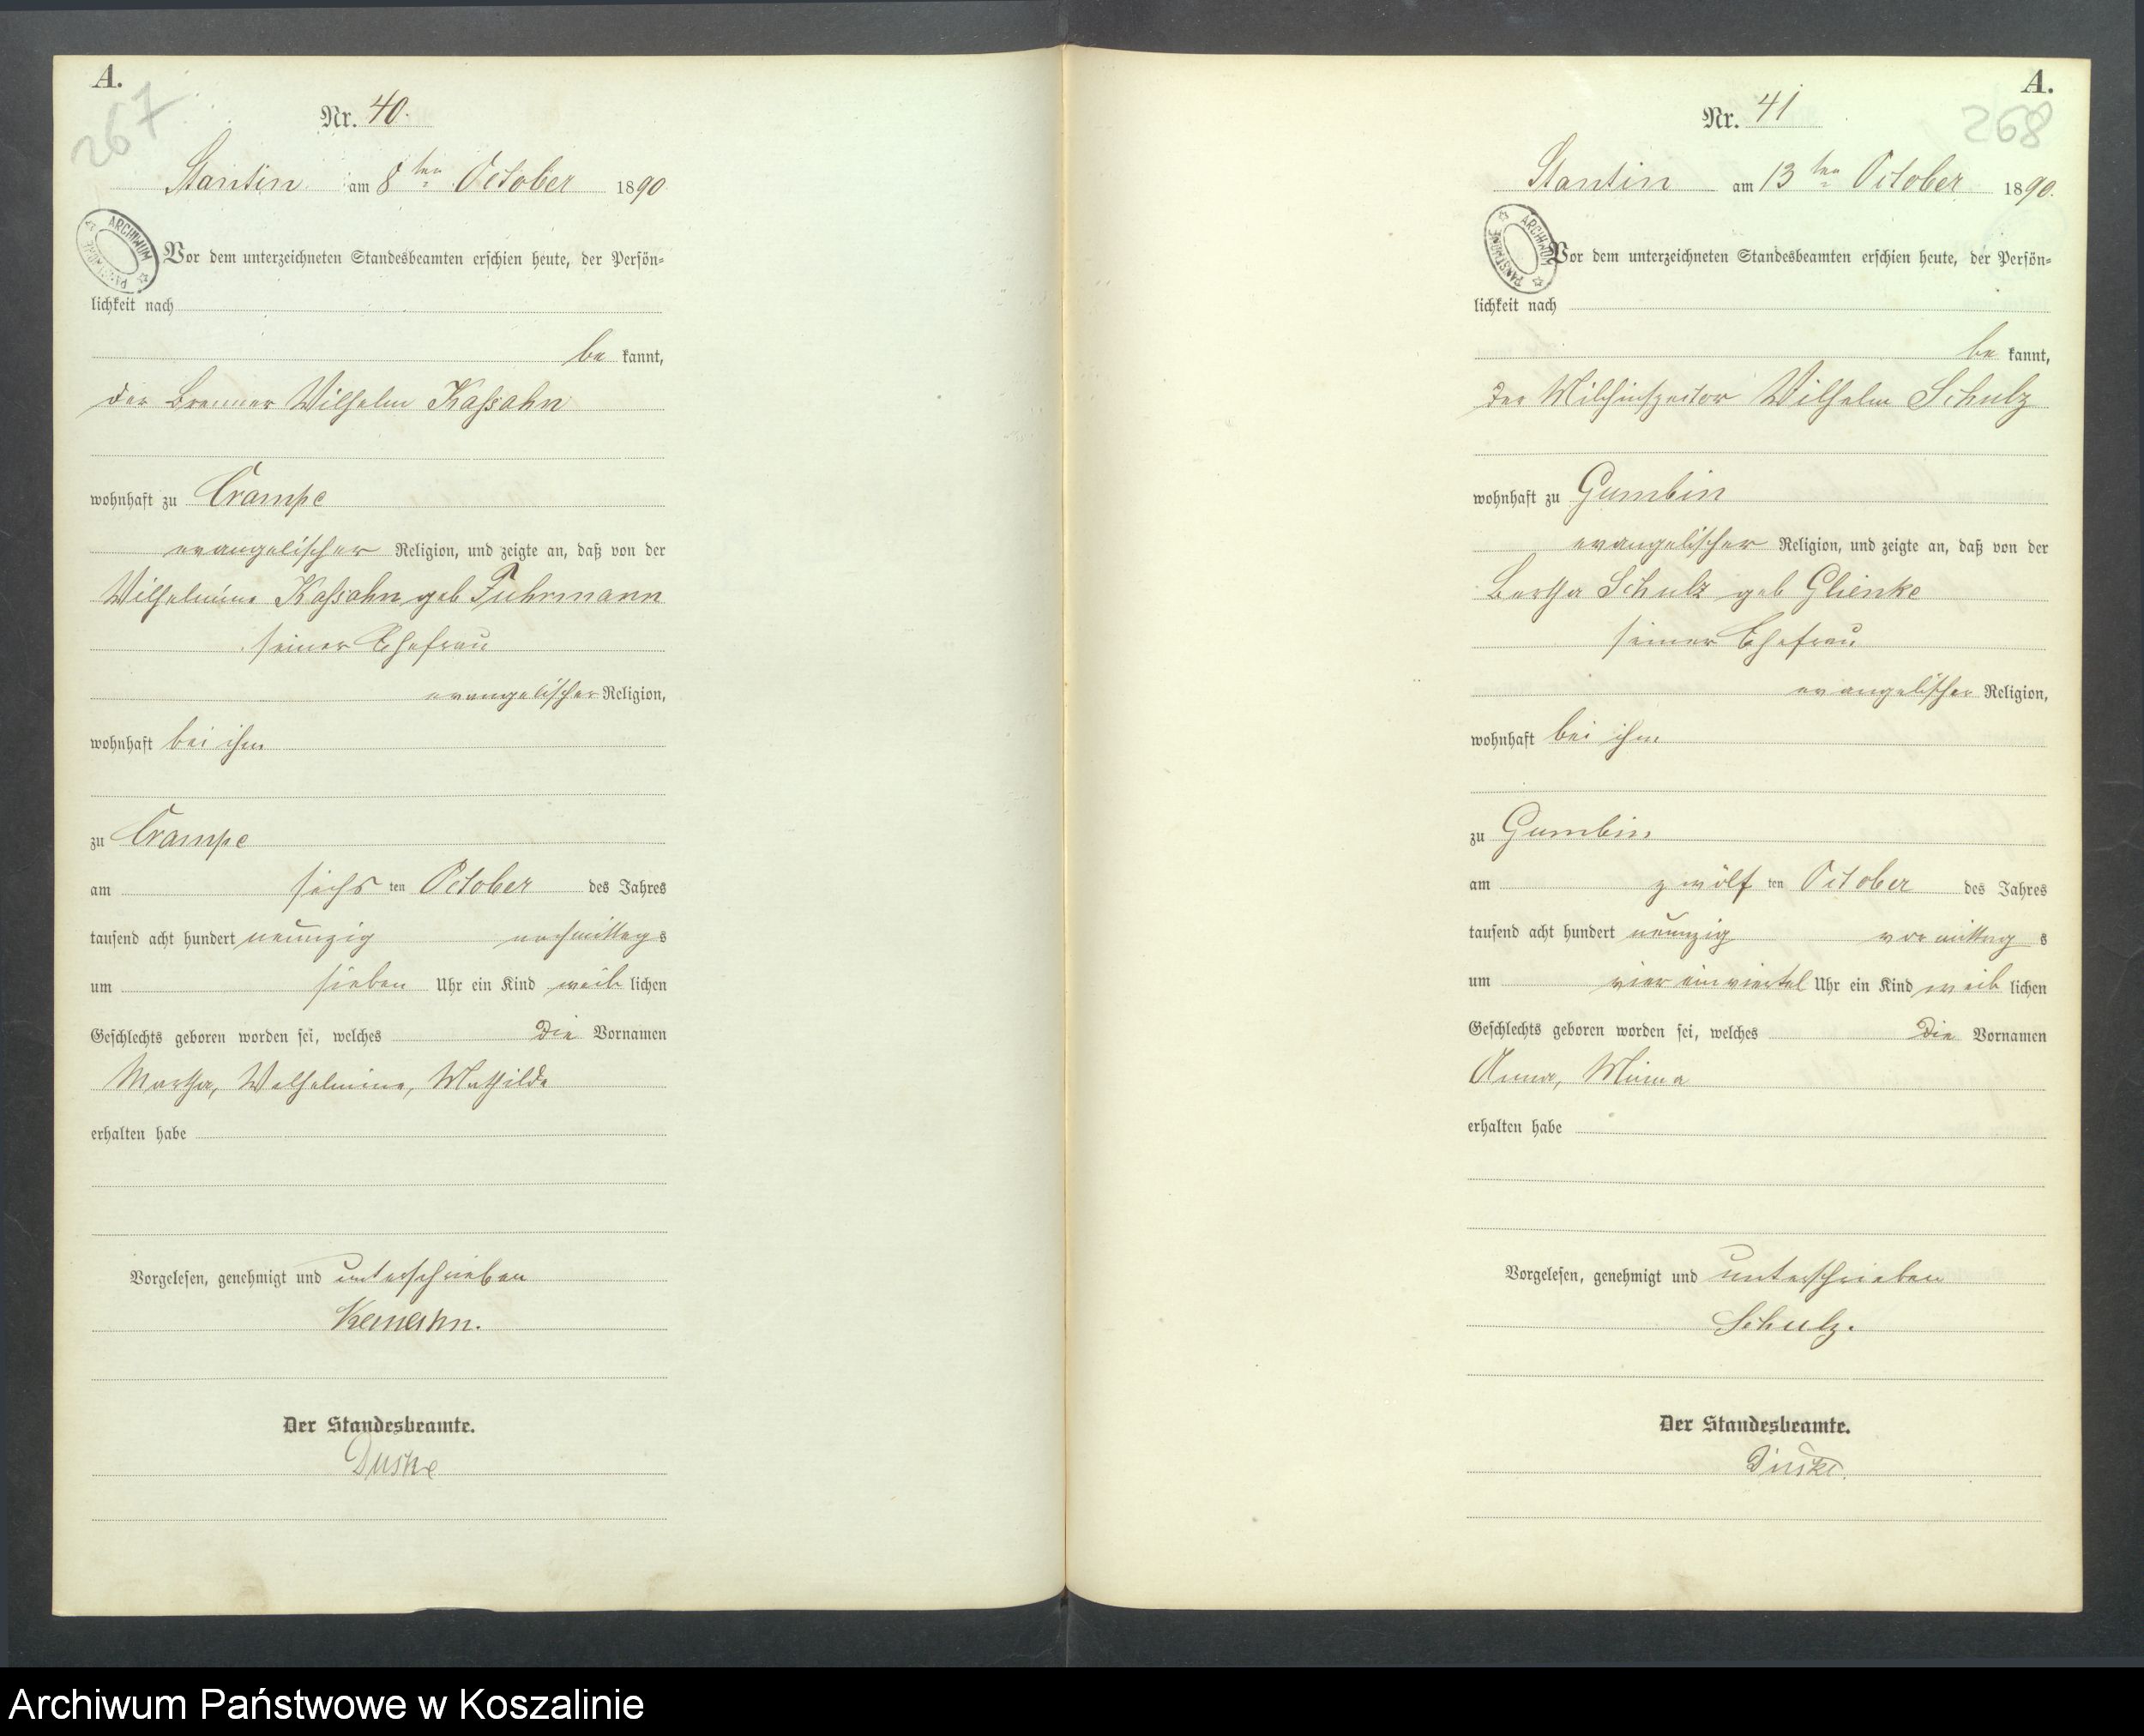 A.
267
Nr. 40.
Stantin am 8ten October 1890
ARCHIWUM PAŃSTWOWE
Vor dem unterzeichneten Standesbeamten erschien heute, der Persön=
lichkeit nach
be kannt,
der Brenner Wilhelm Kaßahn
wohnhaft zu Crampe
evangelischer Religion, und zeigte an, daß von der
Wilhelmine Kaßahn geb Fuhrmann
seiner Ehefrau
evangelischer Religion,
wohnhaft bei ihm
zu Crampe
am sechs ten October des Jahres
tausend acht hundert neunzig nachmittags
um sieben Uhr ein Kind weib lichen
Geschlechts geboren worden sei, welches die Vornamen
Martha, Wilhelmine, Mathilde
erhalten habe
Vorgelesen, genehmigt und unterschrieben
Der Standesbeamte.
Duske
A.
268
Nr. 41
Stantin am 13ten October 1890.
ARCHIWUM PAŃSTWOWE
Vor dem unterzeichneten Standesbeamten erschien heute, der Persön=
lichkeit nach
be kannt,
der Wilhelm Schulz
wohnhaft zu Gumbin
evangelischer Religion, und zeigte an, daß von der
Bertha Schulz geb Glienke
seiner Ehefrau
evangelischer Religion,
wohnhaft bei ihm
zu Gumbin
am zwölf ten October des Jahres
tausend acht hundert neunzig vormittag s
um vier ein viertel Uhr ein Kind weib lichen
Geschlechts geboren worden sei, welches die Vornamen
Anna, Minna
erhalten habe
Vorgelesen, genehmigt und unterschrieben
Schulz.
Der Standesbeamte.
Duske.
Archiwum Państwowe w Koszalinie